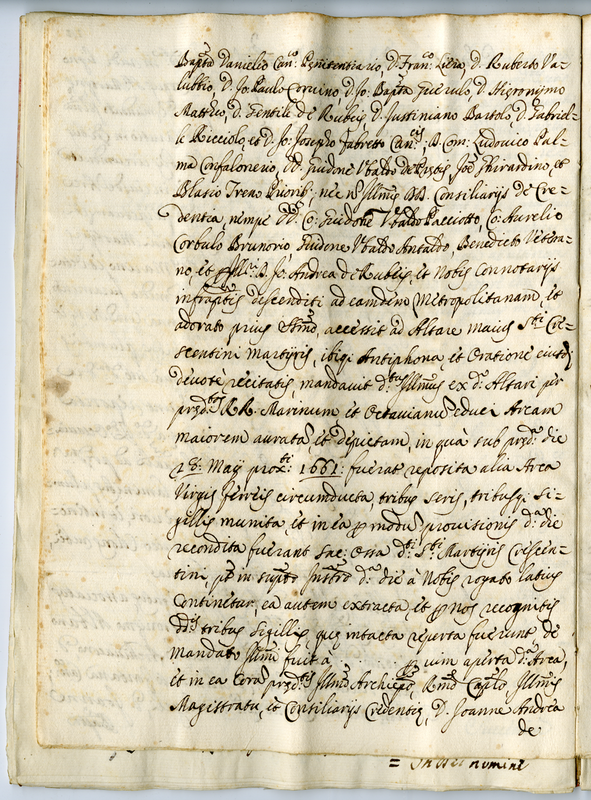 Bap.ta Danielio Can.co Penitentiario, D. Fran.co Lidia, D. Ruberto Va-
lubbio, D. Jo: Paulo Corvino D. Jo: Bap.ta Guerulo, D. Hieronymo
Mattheo, D. Gentile de Rubeis D. Justiniano Bartolo, D. Gabriel-
le Ricciolo, et D. Jo: Josepho Fabretto Can.cis; B. Com: Ludovico Pal-
ma Confalonerio, DD. Guidone Ubaldo de Pistis Joē Ghirardino, et
Blasio Treno Priorib; nec n. Illmis DD. Consiliarijs de Cre-
dentia, nempe DD. Co: Guidone Ubaldo Pacciotto, Co: Aurelio
Corbulo Brunorio Guidone Ubaldo Antaldo, Benedicto Vetera-
no, et D. Jo: Andrea de Rubeis, et Nobis Connotarijs
infraptis descendit ad eamdem Metropolitanam, et
adorato prius SSmo, accessit ad Altare maius S.ti Cre-
scentini Martyris, ibiq; Antiphona, et Oratione eiusd;
devote recitatis, mandavit d.tus Illmus ex d.o Altari per
pred.tos RR. Marinum et Octavianū educi Arcam
maiorem auratā et depictam, in qua sub pred.o die
28. Maij prox.i 1661: fuerat reposita alia Arca
Virgis ferreis circumducta, tribus seris, tribusq; Si-
gillis munita, et in ea p modū provisionis d.a die
recondita fuerant Sac: Ossa d.ti S.ti Martyris Crescen-
tini, pt in supto Instro d.a die à Nobis rogato latius
Continetur, ea autem extracta, et p nos recognitis
dd.is tribus Sigillis, quę intacta reperta fuerunt de
mandato Illmi fuit a . . . . . p vim aperta d.a Arca,
et in ea Cora pred.tis Illmo Archiepo, Rmo Caplo Illmis
Magistratu, et Consiliarijs Credentię, D. Joanne Andrea
de
= In Dei nomine